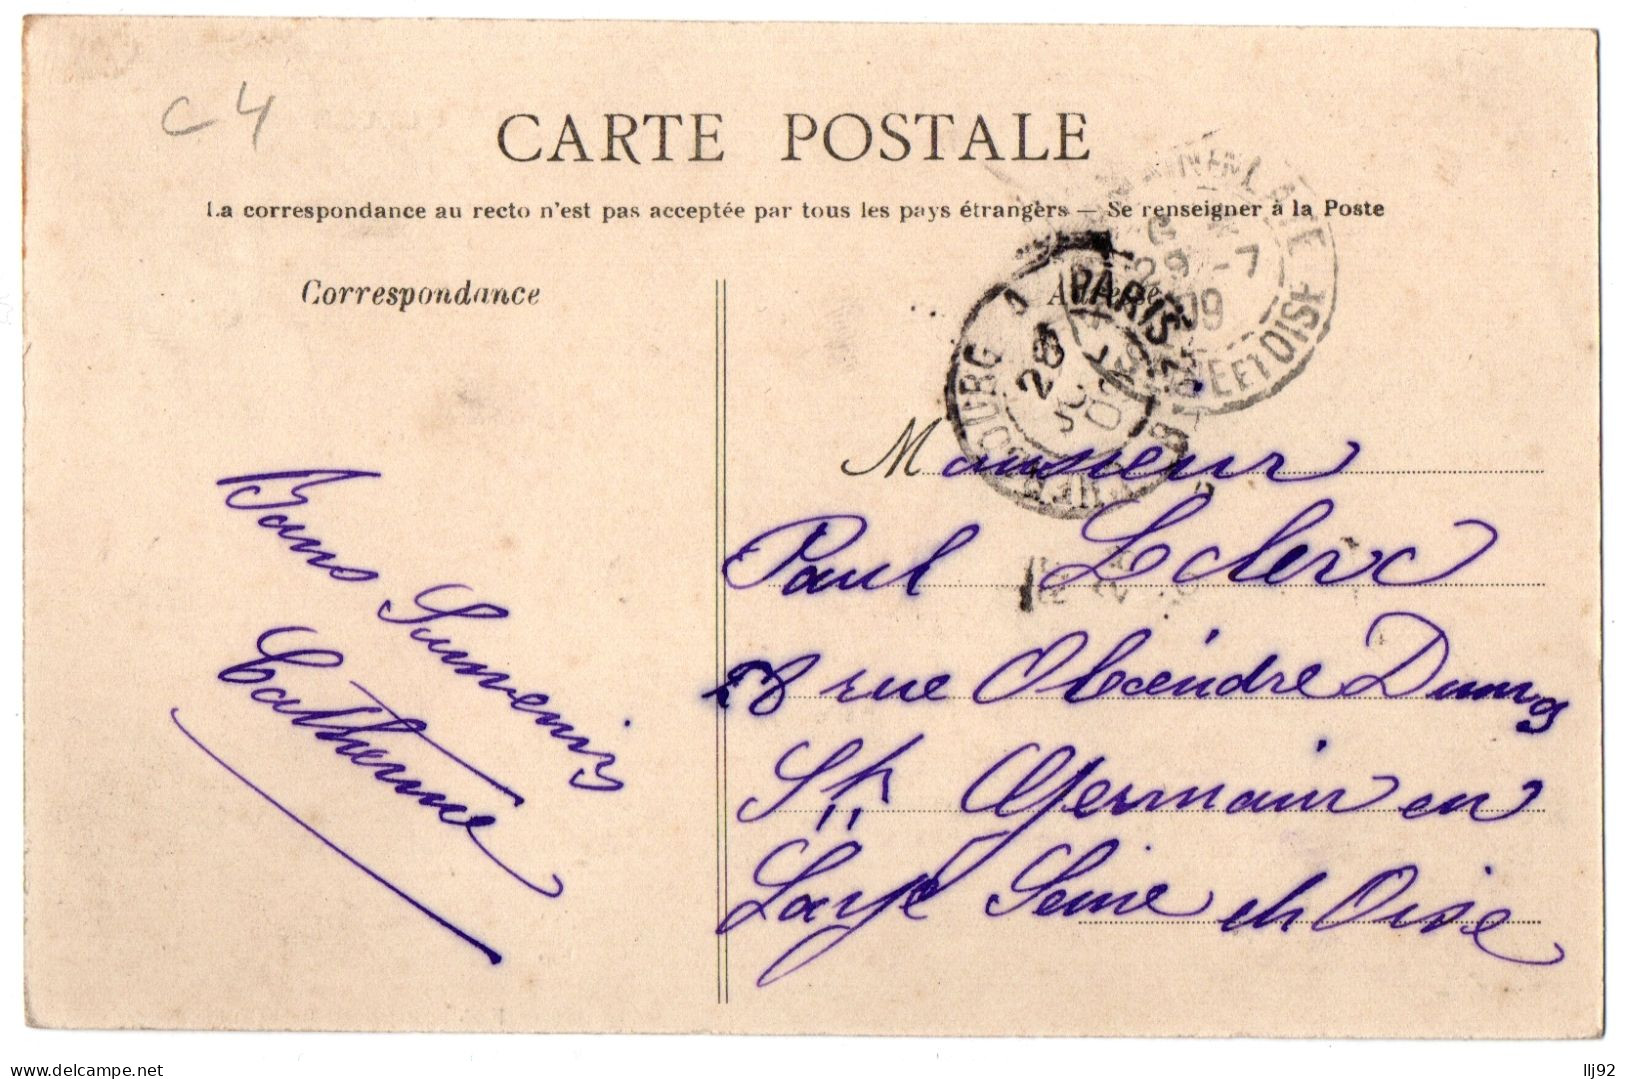 C4
CARTE POSTALE
La correspondance au recto n'est pas acceptée par tous les pays étrangers — Se renseigner à la Poste
Correspondance
Adresse
PARIS
28
29 -7
09
SEINE ET OISE
Bons Souvenirs
Catherine
Monsieur
Paul Leclerc
28 rue Alexandre Dumas
St Germain en
Laye Seine et Oise
llj92